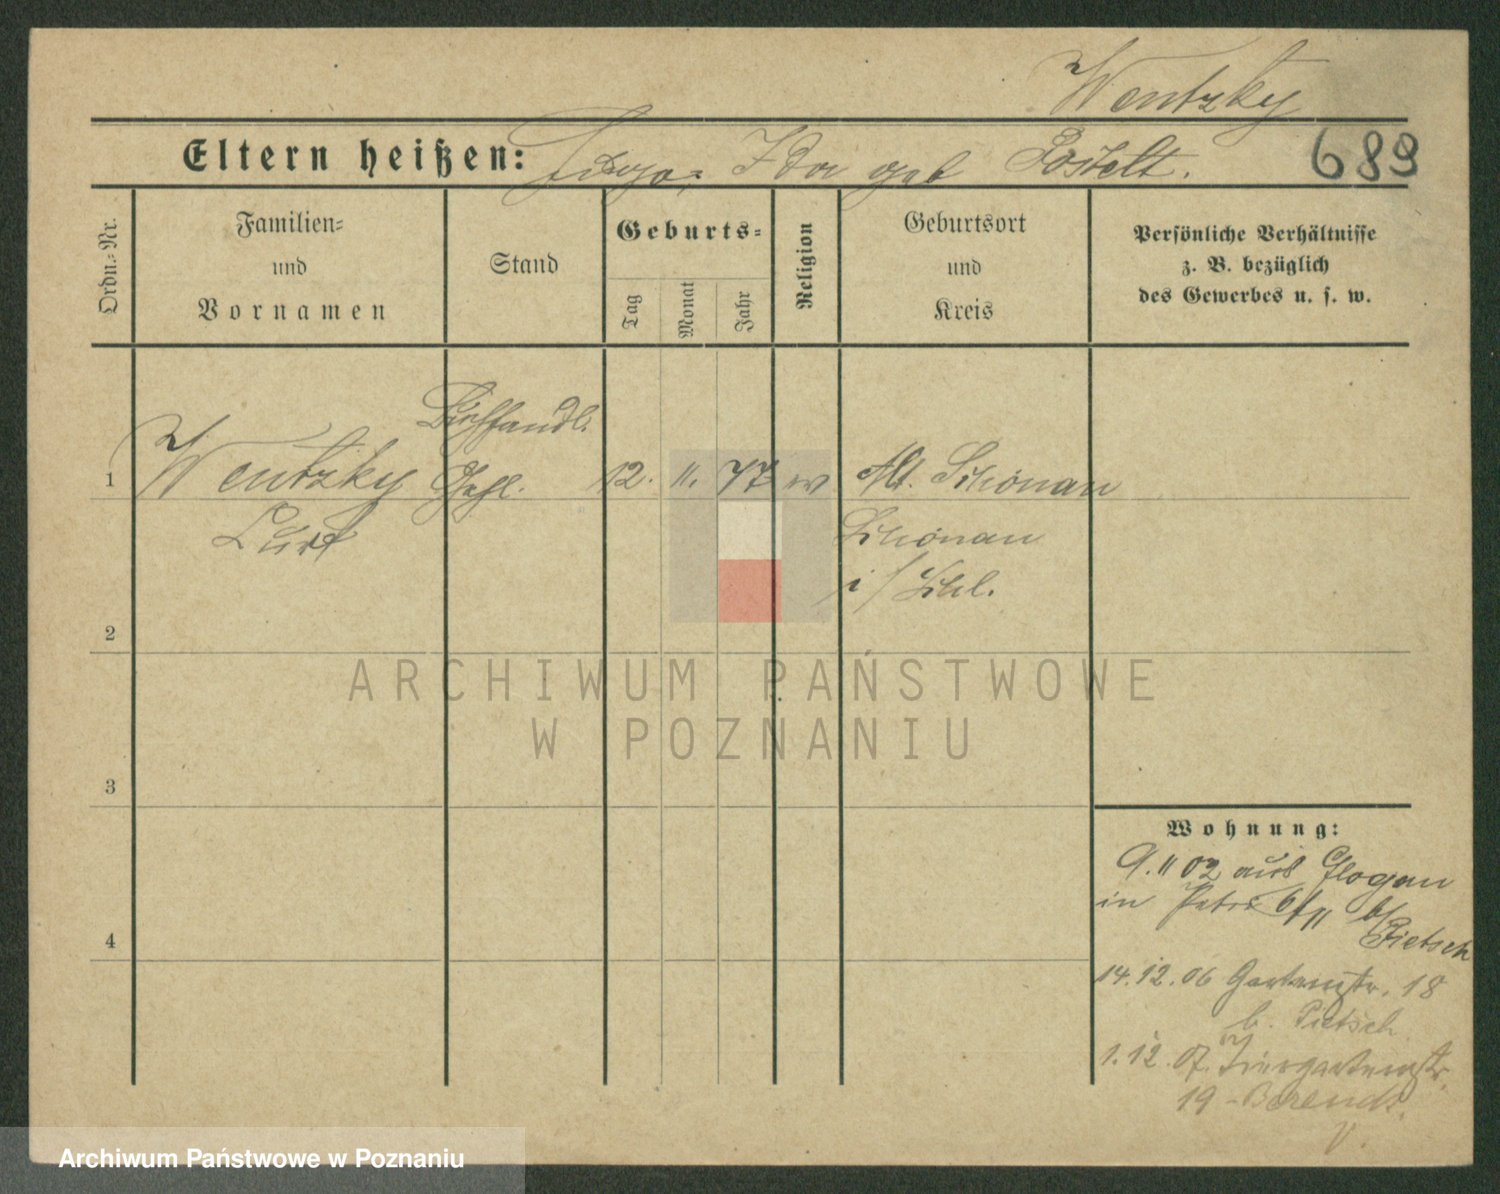 Wentzky
689
Eltern heißen: Ida geb Postelt.
Ordn.-Nr.
Familien-
und
Vornamen
Stand
Geburts-
Tag
Monat
Jahr
Religion
Geburtsort
und
Kreis
Persönliche Verhältnisse
z. B. bezüglich
des Gewerbes u. s. w.
Buchhandl.
1 Wentzky Gehl. 12. 11. 77 Alt. Schönau
Curt Schönau
i/Schl.
2
3
4
Wohnung:
9. 11 02 aus Glogau
in Petri 6/11 b/
Pietsch
14. 12. 06 Gartenstr. 18
b. Pietsch
1. 12. 07. Tiergartenstr.
19 - Berendt.
ARCHIWUM PAŃSTWOWE
W POZNANIU
Archiwum Państwowe w Poznaniu